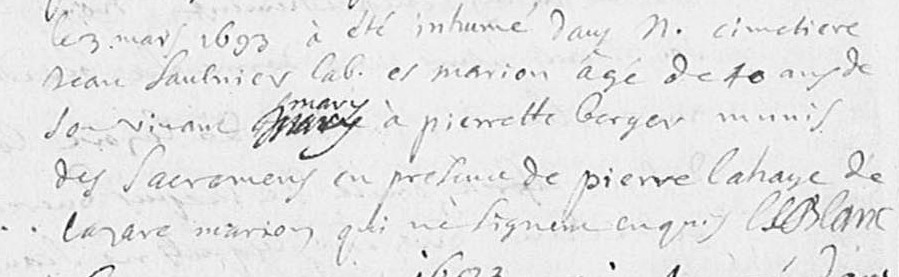 le 3 mars 1693 à été inhumé dans N. cimetiere
Jean Saulnier lab. es marion âgé de 40 ans de
son vivant mary à pierrette berger munis
des Sacremens en presence de pierre lahaye de
lazare marion qui nè signent enquis LeBlanc
1693